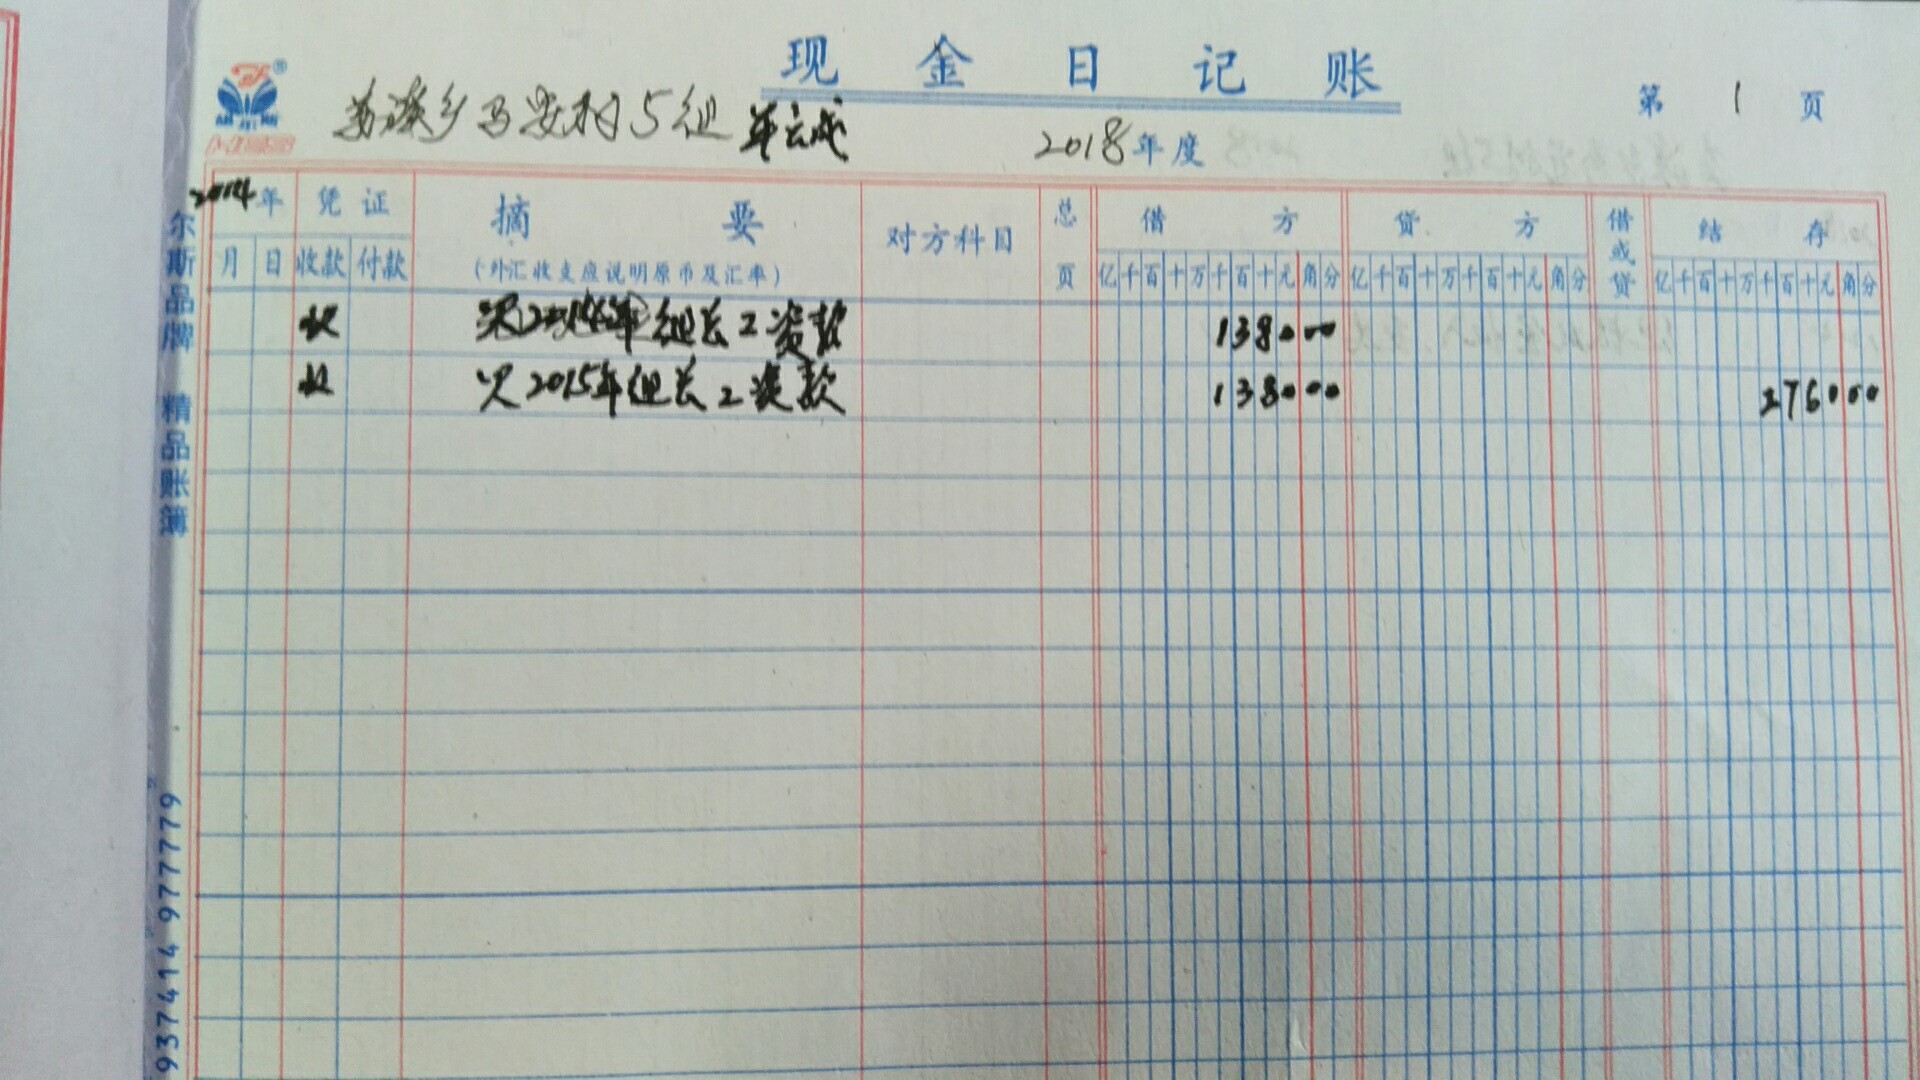 现金日记账
乡马安村5组
第 1 页
2018年度
2014年 凭证 摘要 对方科目 总页 借方 贷方 借或贷 结存
月 日 收款 付款 (外汇收支应说明原币及汇率) 亿千百十万千百十元角分 亿千百十万千百十元角分 亿千百十万千百十元角分
收 年组长工资款 138000
收 欠2015年组长工资款 138000 276000
尔斯品牌 精品账簿
9374414 9777779